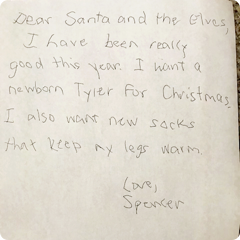 Dear Santa and the Elves,
I have been really
good this year. I want a
newborn Tyler for Christmas.
I also want new socks
that keep my legs warm
Love,
Spencer